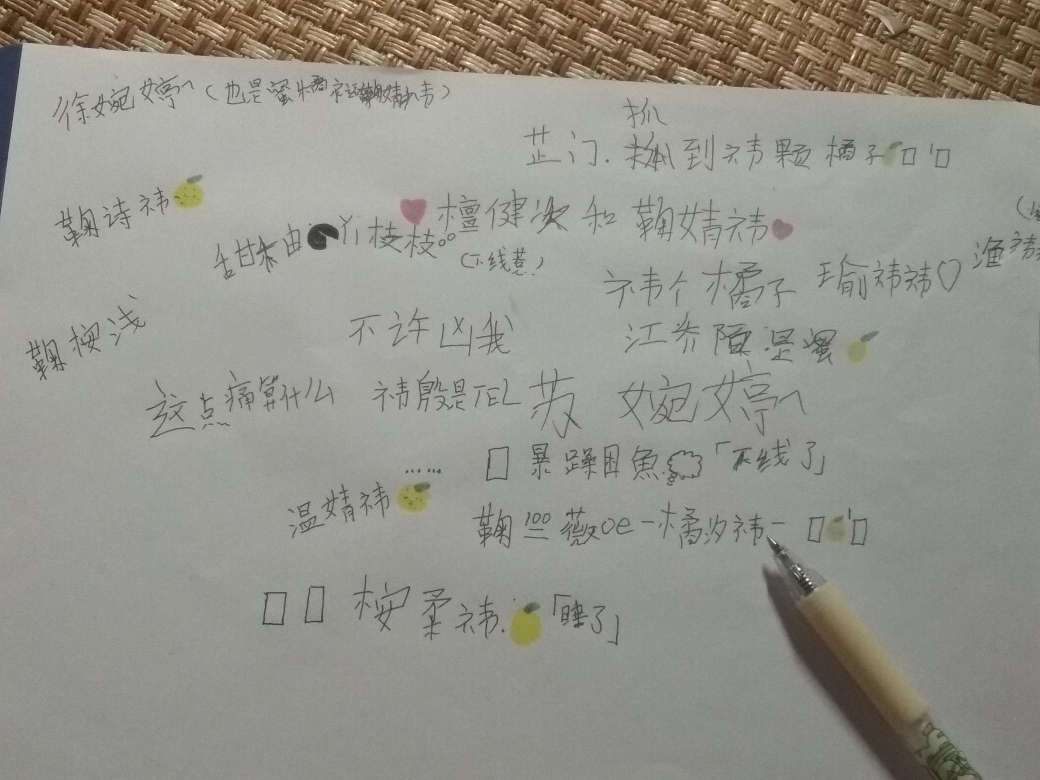 徐婉婷へ(也是蜜橘
抓
芷门.到祎颗橘子🍊口'口
鞠诗祎🍋
甜柚丫枝枝。。
(下线惹)
❤檀健次和鞠婧祎❤
祎个橘子
瑜祎祎♡
渔祎
鞠桉浅
不许凶我
江
这点痛算什么
祎殷是TEL
苏婉婷へ
口暴躁目鱼「下线了」
……
温婧祎🍋
鞠薇oe-橘汐祎-口🍊'口
口口桉柔祎.🍋「睡了」